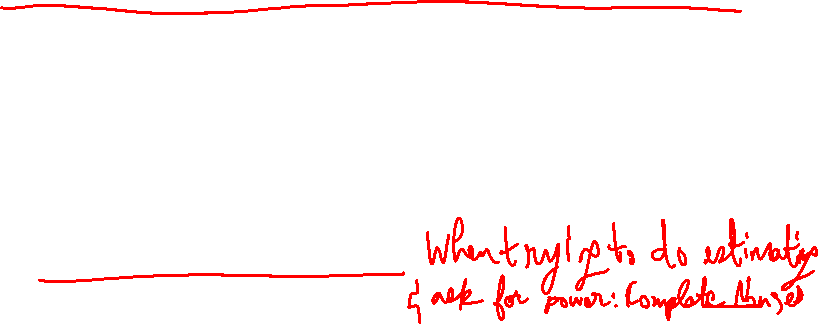 When trying to do estimating
& ask for power: Complete